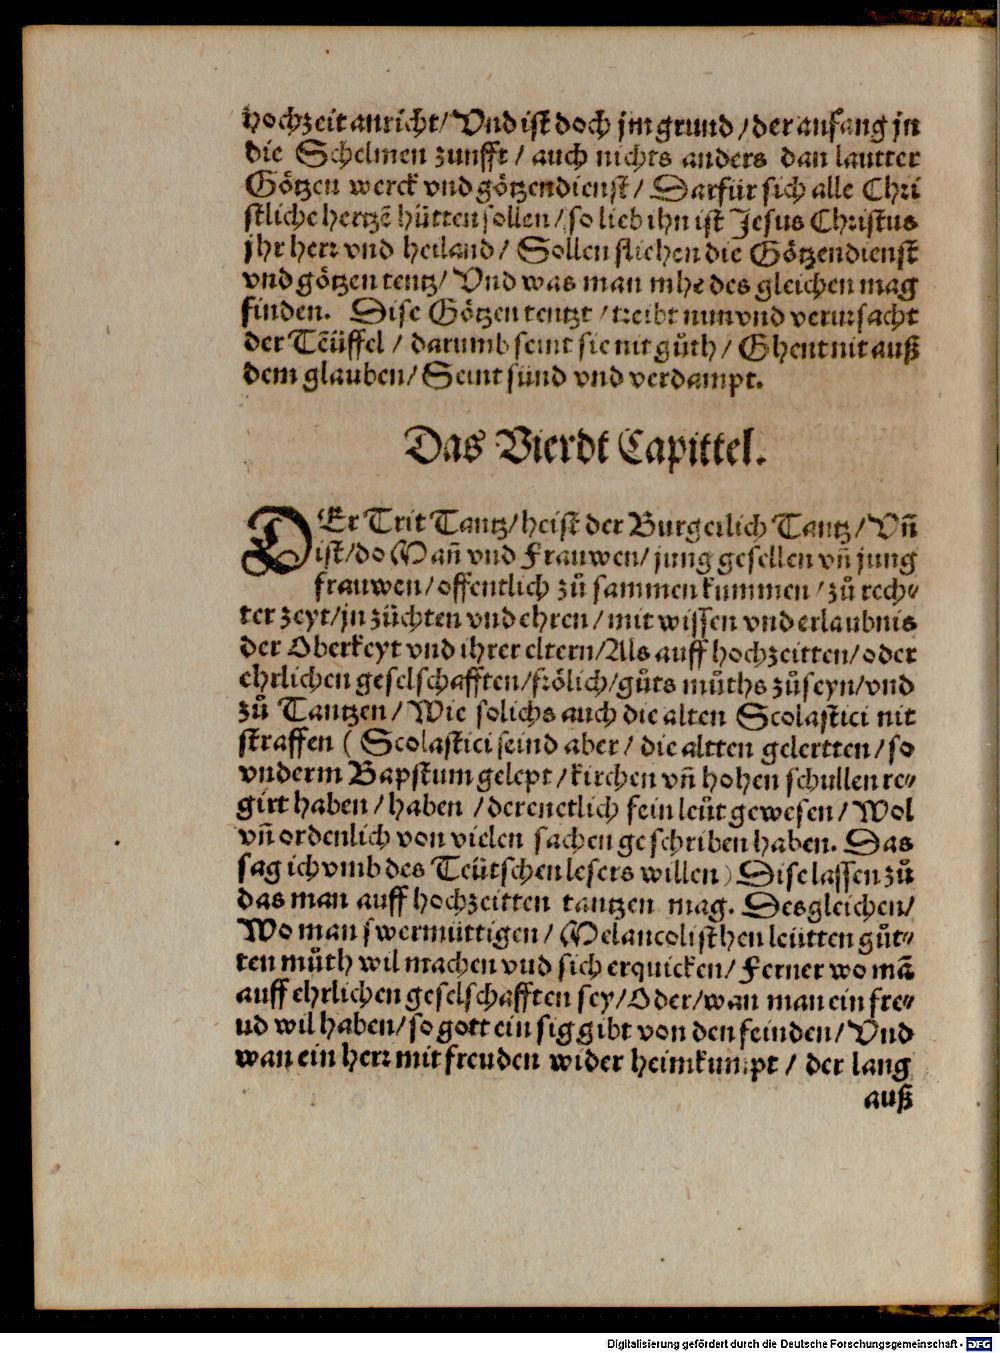 hochzeit anricht/ Vnd ist doch jm grund/ der anfang jn
die Schelmen zunfft/ auch nichts anders dan lautter
Götzen werck vnd götzendienst/ Darfür sich alle Chri
stliche hertzẽ hütten sollen/ so lieb ihn ist Jesus Christus
jhr herr vnd heiland/ Sollen fliehen die Götzendienst
vnd götzen tentz/ Vnd was man mhe des gleichen mag
finden. Dise Götzen tentzt/ treibt nun vnd verursacht
der Teüffel/ darumb seint sie nit gůth/ Ghent nit auß
dem glauben/ Seint sünd vnd verdampt.
Das Vierdt Capittel.
DEr Trit Tantz/ heist der Burgerlich Tantz/ Vñ
ist/ do Mañ vnd Frauwen/ jung gesellen vñ jung
frauwen/ offentlich zů sammen kummen/ zů rech⸗
ter zeyt/ jn züchten vnd ehren/ mit wissen vnd erlaubnis
der Oberkeyt vnd ihrer eltern/ Als auff hochzeitten/ oder
ehrlichen geselschafften/ frölich/ gůts můths zů seyn/ vnd
zů Tantzen/ Wie solichs auch die alten Scolastici nit
straffen ( Scolastici seind aber/ die altten gelertten/ so
vnderm Bapstum gelept/ kirchen vñ hohen schullen re⸗
girt haben/ haben / derenetlich fein leüt gewesen/ Wol
vñ ordenlich von vielen sachen geschriben haben. Das
sag ich vmb des Teütschen lesers willen) Dise lassen zů
das man auff hochzeitten tantzen mag. Desgleichen/
Wo man swermüttigen/ Melancolisthen leütten gůt⸗
ten můth wil machen vnd sich erquicken/ Ferner wo mã
auff ehrlichen geselschafften sey/ Oder/ wan man ein fre⸗
ud wil haben/ so gott ein sig gibt von den feinden/ Vnd
wan ein herr mit freuden wider heimkumpt/ der lang
auß
Digitalisierung gefördert durch die Deutsche Forschungsgemeinschaft - DFG